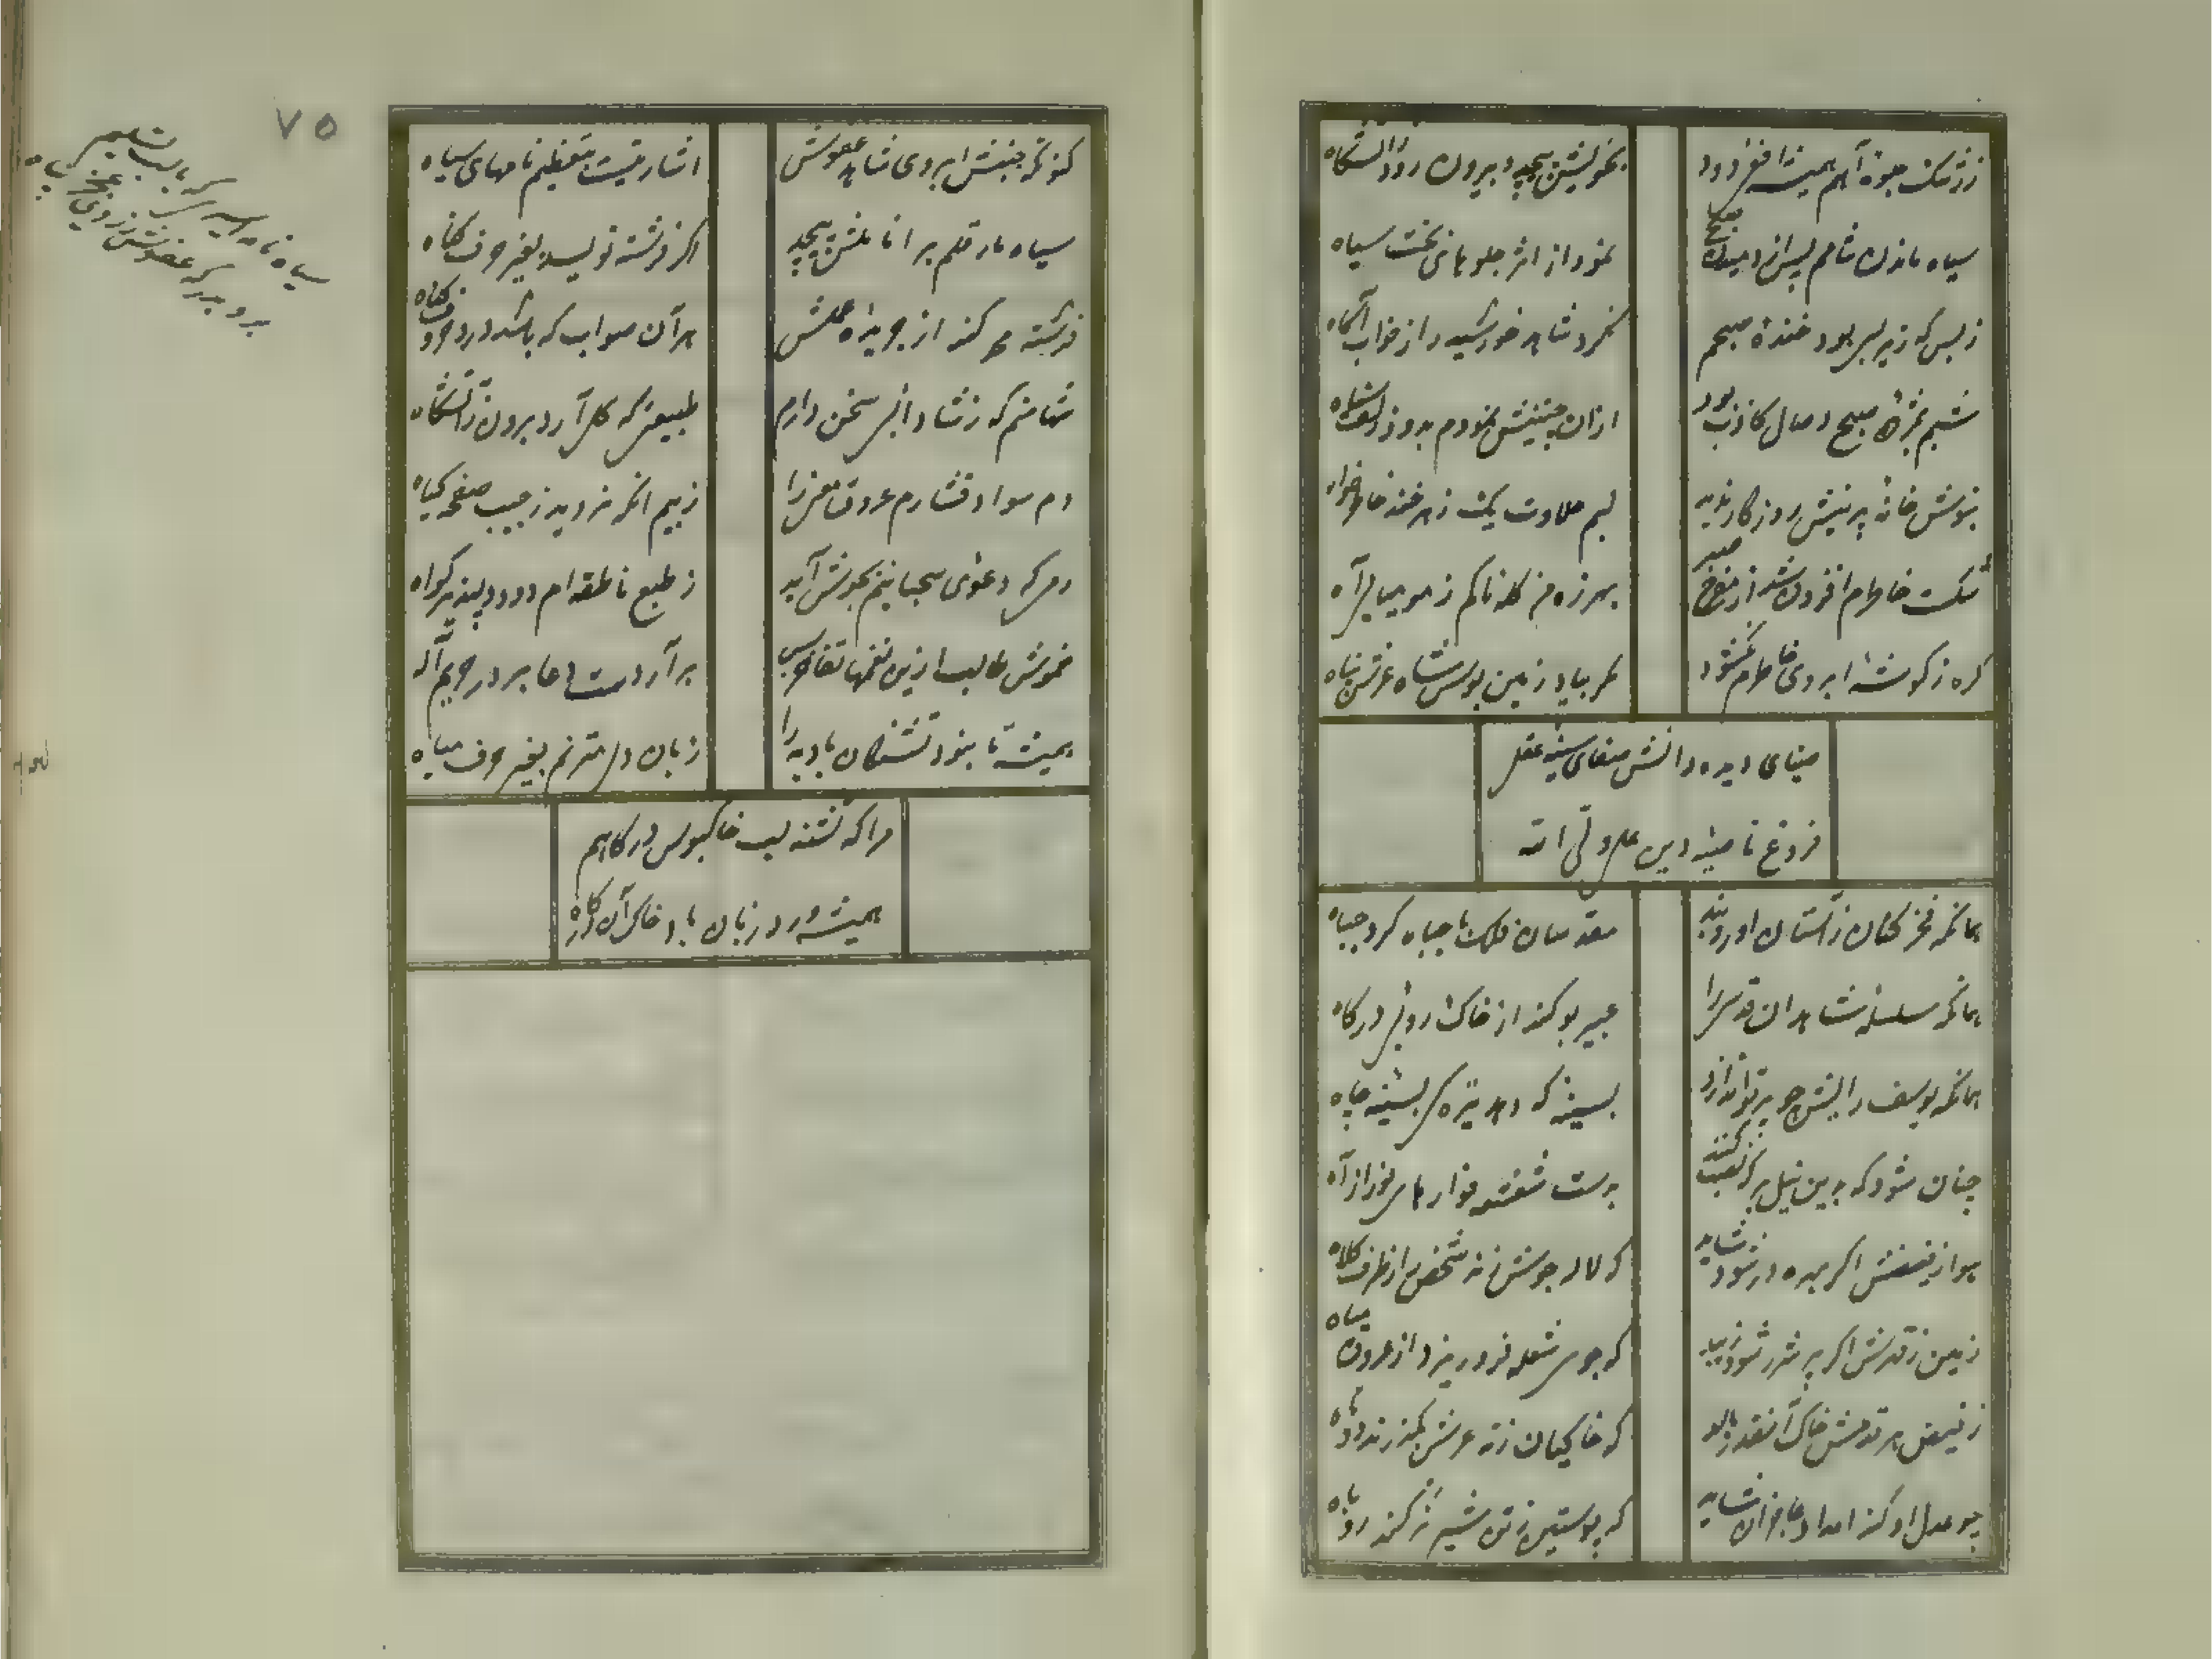 ز رشک جبوه آهم همیشه افغر دود
بخویشتن پیچد و بیرون رود ز آتشگاه
سیاه ماندن شامم پس از دمیدن صبح
نمود از اثر جلوهای بخت سیاه
ز بس که زیر لبی بود خنده صبحم
نکرد شاهد خورشید را ز خواب آگاه
شبم بمژده صبح وصال کاذب بود
ازان جنبشش نمودم بدود
بنوش خانه پر نیش روزگار ندید
لبم حلاوت یک زهرخند خاطرخواه
شکست خاطرم افزون شد از صبر
بهرزه من گله ناکم ز مومیایی آه
گره ز گوشه ابروی خاطرم نگشود
مگر بیاد زمین بوس شاه عرش پناه
ضیای دیده دانش صفای سینه عقل
فروغ ناصیه دین علی ولی الله
همانکه فخر کنان ز آستان او روبند
مقدسان فلک با جباه گرد جباه
همانکه سلسله شاهدان قدسی را
عبیر بو کند از خاک روبی درگاه
همانکه یوسف رایش چو پرتو اندازد
بسینه که دهد تیرگی بسینه چاه
چنان شود که بدین نیل پرکند
بدست شعشعه خوارهای نور از آه
هوا ز فیضش اگر بهره ور شود شاید
که لاله جوش زند شخص را ز طرف کلاه
زمین ز قدرش اگر پر شرر شود زیبد
که جوی شعله فرو ریزد از عروق میاه
ز فیض هر قدمش خاک آنقدر بالد
که خاکیان ز ته عرش بگذرند دوتاه
چو عدل او کند امداد عاجزان شاید
که پوستین ز تن شیر نر کند روباه
کنونکه جنبش ابروی شاهد عفوش
اشارتیست بتعظیم نامهای سیاه
سیاه مار قلم بر انا ملش پیچد
اگر فرشته نویسد بغیر حرف گناه
فرشته محو کند از جریده عملش
هر آن صواب که باشد درو حروف گناه
شها منم که ز نشاد انش سخن دارم
طبیعتی که گل آرد برون ز آتشگاه
دم سواد فشارم عروق مغز را
ز بیم انکه نروید ز جیب صفحه گیاه
دمی که دعوی سحبانیم بجوش آید
ز طبع ناطقه ام دو دو پذیر گواه
خموش طالب ازین نغمها تفاخر بس
برآر دست دعا بر در حریم آله
همیشه تا بنود تشنگان بادیه را
زبان دل مترنم بغیر حرف میاه
مرا که تشنه لب خاکبوس درگاهم
همیشه ورد زبان باد خاک آن درگاه
۷۵
سیاه نامه سر که با لب تسلیم
برد بدرگه عفوش ز روی عجز پناه